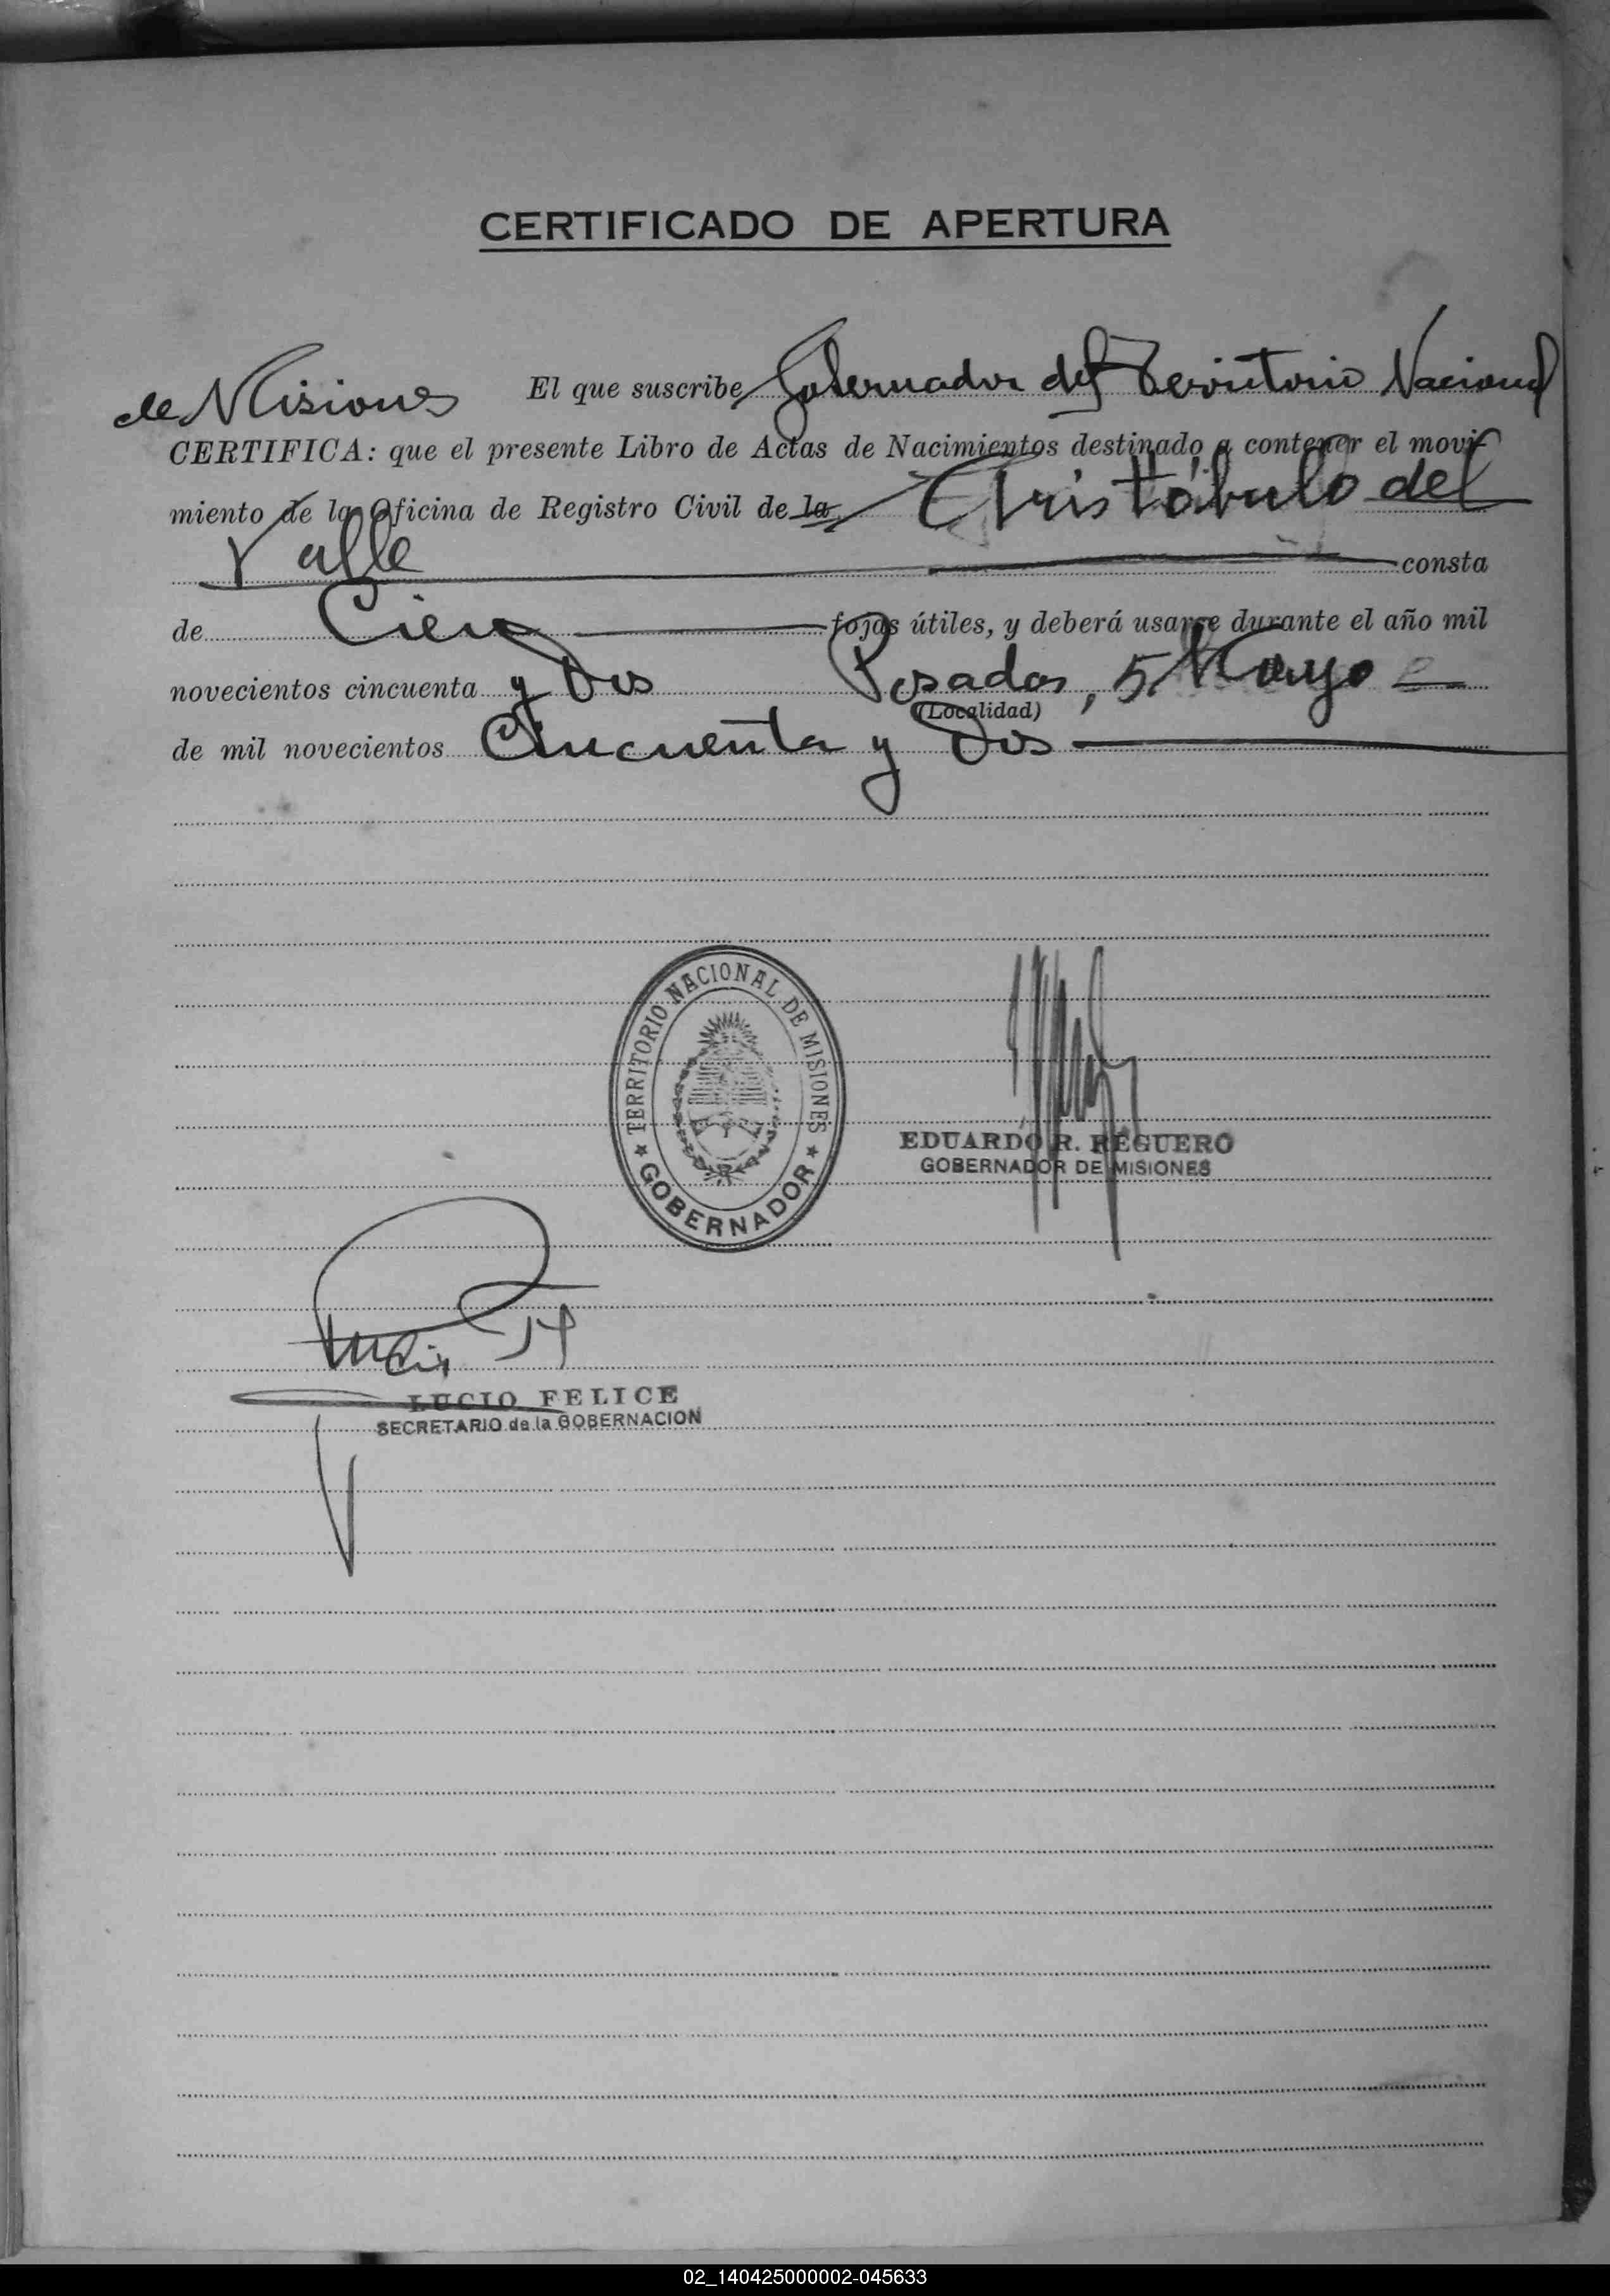 CERTIFICADO DE APERTURA
El que suscribe Gobernador del Territorio Nacional
de Misiones
CERTIFICA: que el presente Libro de Actas de Nacimientos destinado a contener el movi-
miento de la Oficina de Registro Civil de la Aristóbulo del
Valle consta
de Cien fojas útiles, y deberá usarse durante el año mil
novecientos cincuenta y Dos Posadas, 5 Mayo
(Localidad)
de mil novecientos Cincuenta y Dos
TERRITORIO NACIONAL DE MISIONES
★ GOBERNADOR ★
EDUARDO R. REGUERO
GOBERNADOR DE MISIONES
LUCIO FELICE
SECRETARIO de la GOBERNACION
02_140425000002-045633